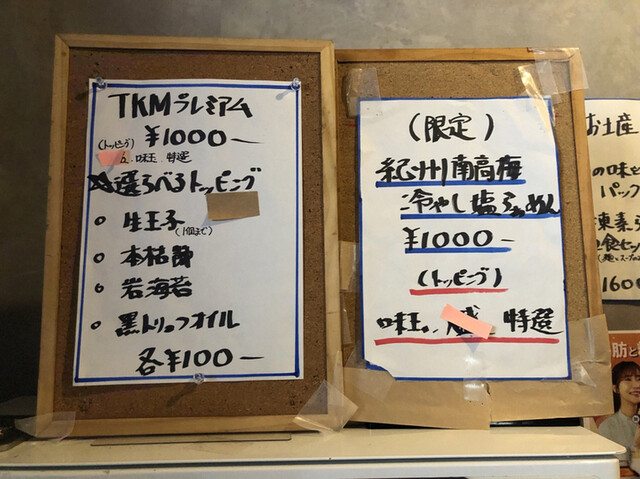 TKMプレミアム
¥1000ー
(トッピング)
味玉 特選
選らべるトッピング
○ 生玉子
(1個まで)
○ 本枯節
○ 岩海苔
○ 黒トリュフオイル
各¥100ー
(限定)
紀州南高梅
冷やし塩らぁめん
¥1000ー
(トッピング)
味玉 特選
お土産
の味と
パック